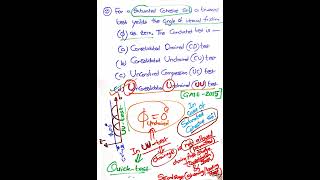 For a Saturated Cohesive Soil, a triaxial
test yields the angle of internal friction
ϕ as Zero. The Conducted test is —
(a) Consolidated Drained (CD) test
(b) Consolidated Undrained (CU) test
(c) Unconfined Compression (UC) test
(d) Unconsolidated Undrained (UU) test
[GATE-2015]
UU-test
ϕ = 0°
Undrained
In
Case of
Saturated
Cohesive Soil
In UU-test
drainage is not allowed
Quick-test